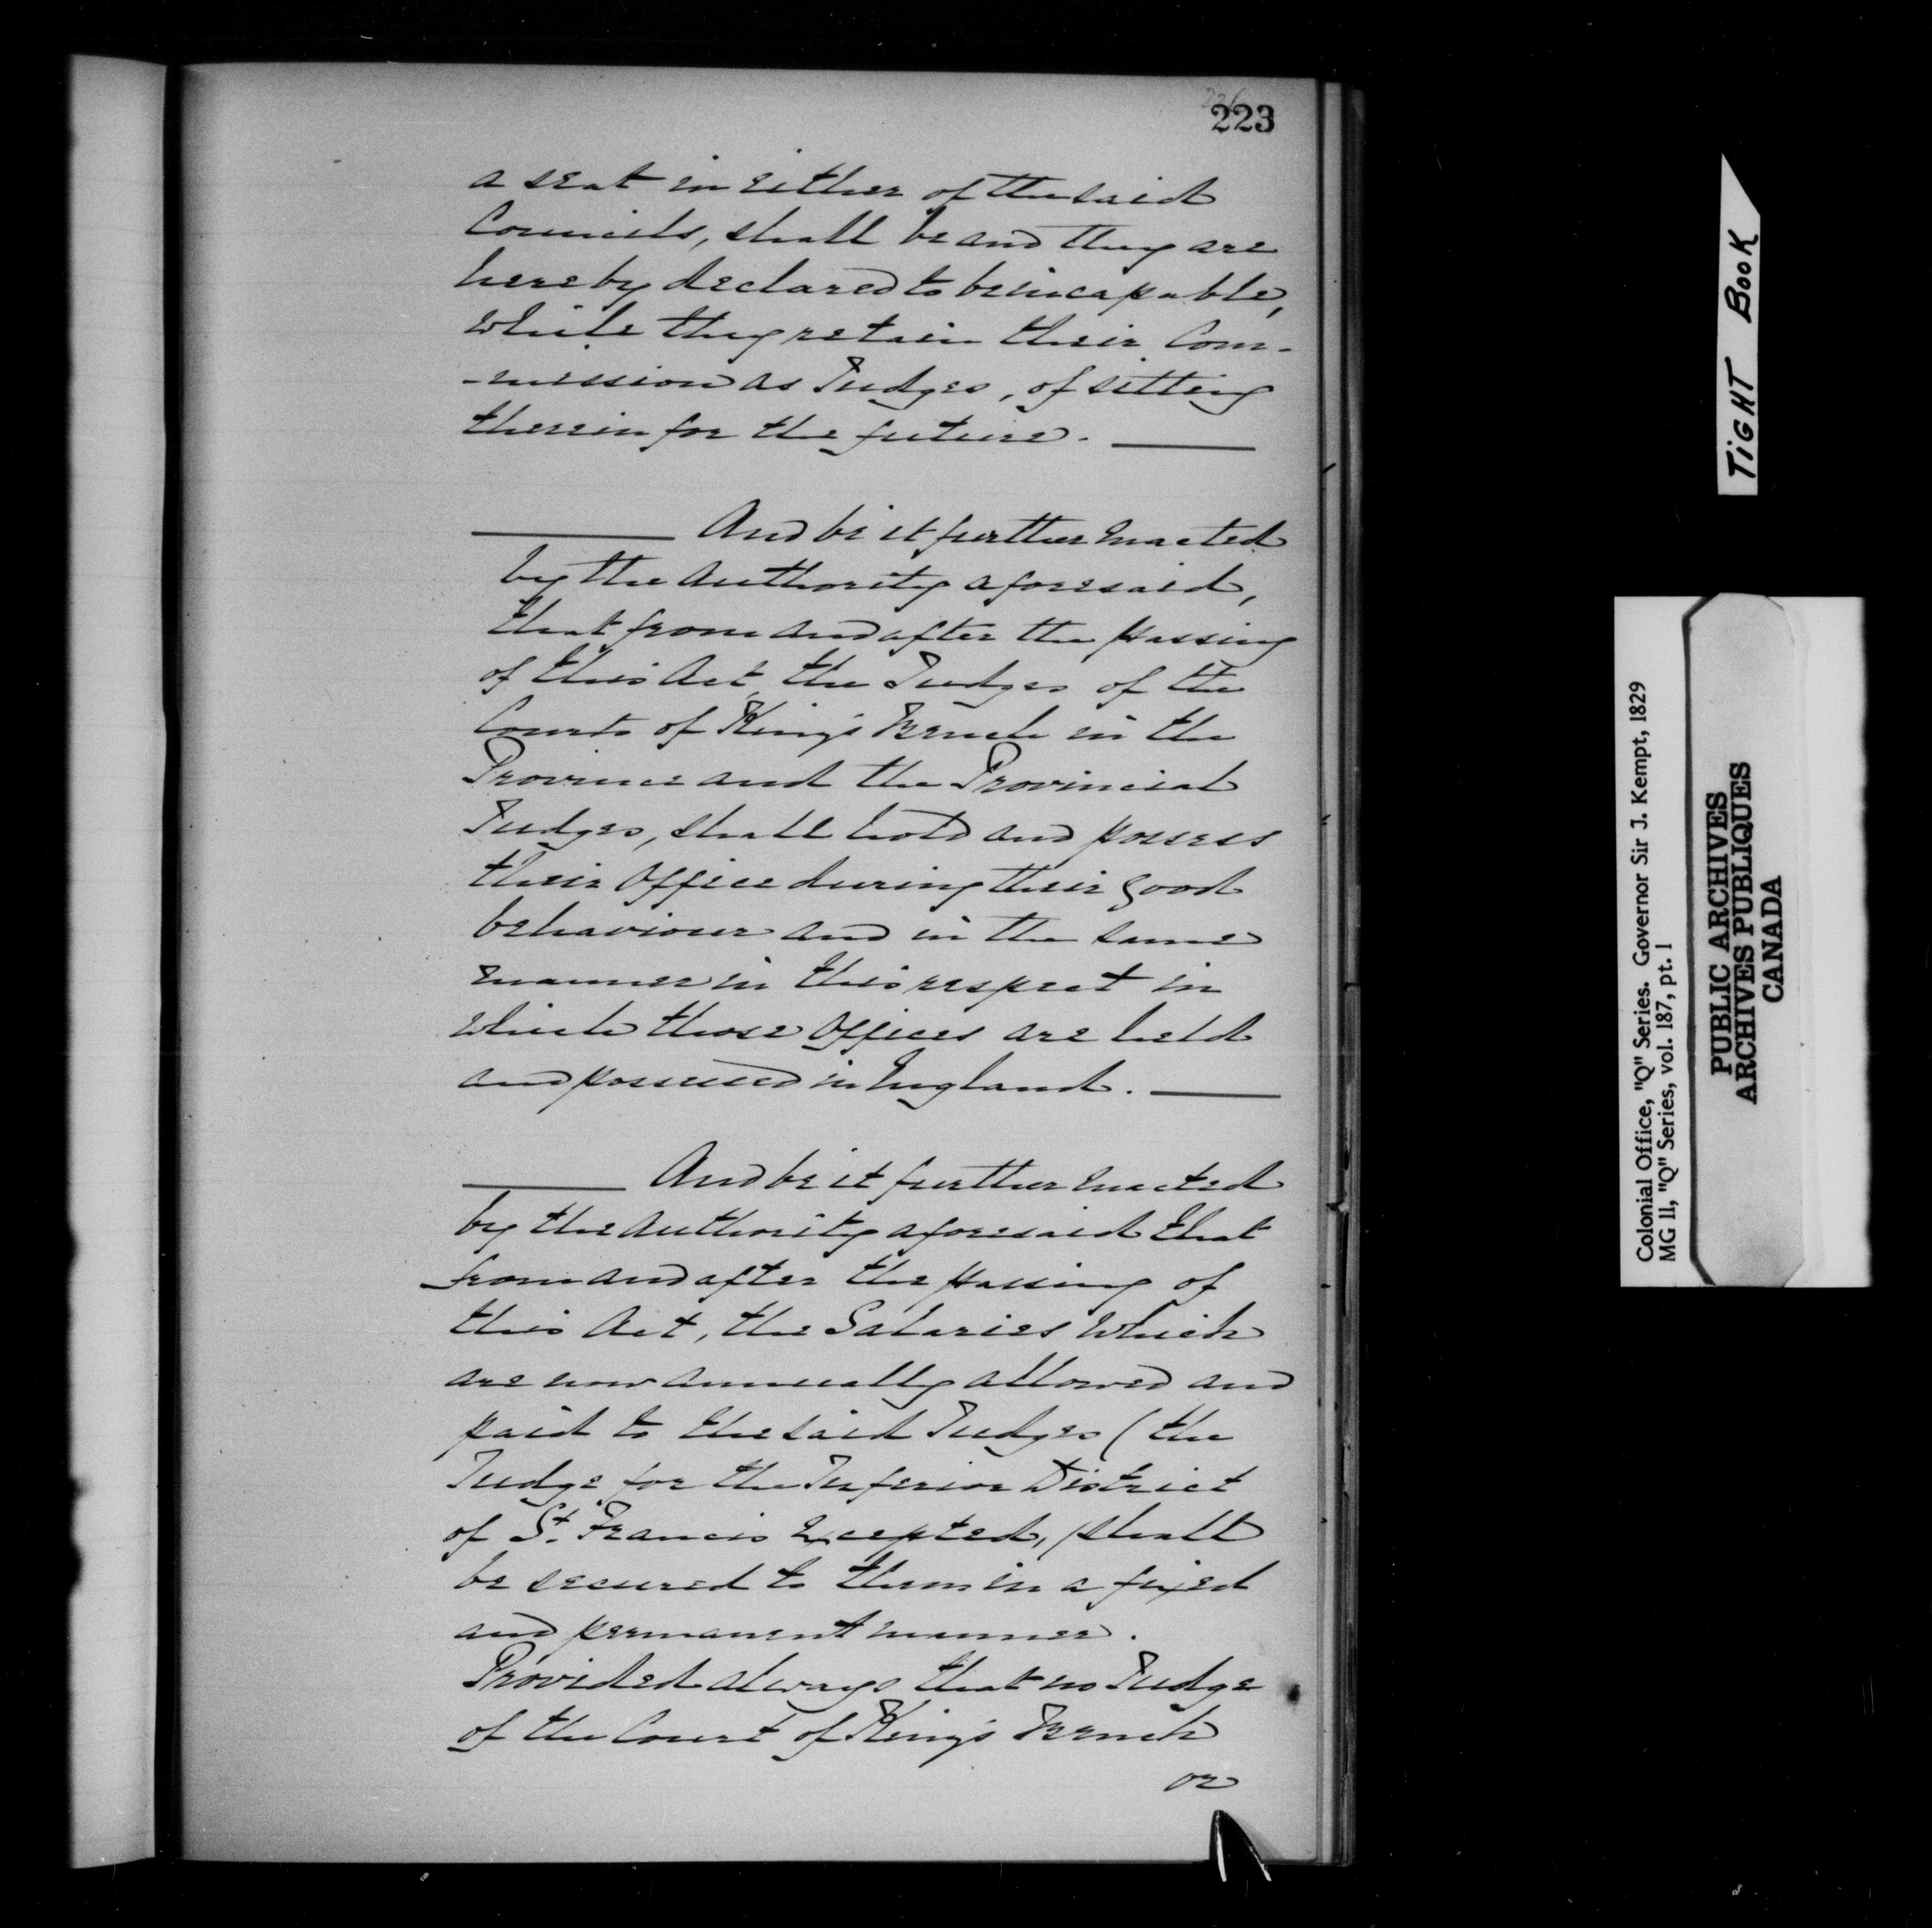 223
a seat in either of the said
Councils, shall be and they are
hereby declared to be incapable,
while they retain their Com-
-mission as Judges, of sitting
therein for the future.
And be it further Enacted
by the Authority aforesaid,
that from and after the passing
of this Act, the Judges of the
Courts of King's Bench in the
Province and the Provincial
Judges, shall hold and possess
their Office during their good
behaviour and in the same
manner in this respect in
which those Offices are held
and possessed in England.
And be it further Enacted
by the Authority aforesaid that
from and after the passing of
this Act, the Salaries which
are now annually allowed and
paid to the said Judges (the
Judge for the Inferior District
of St. Francis Excepted,) shall
be secured to them in a fixed
and permanent manner.
Provided always that no Judge
of the Court of King's Bench
or
TIGHT BOOK
Colonial Office, "Q" Series. Governor Sir J. Kempt, 1829
MG 11, "Q" Series, vol. 187, pt. 1
PUBLIC ARCHIVES
ARCHIVES PUBLIQUES
CANADA